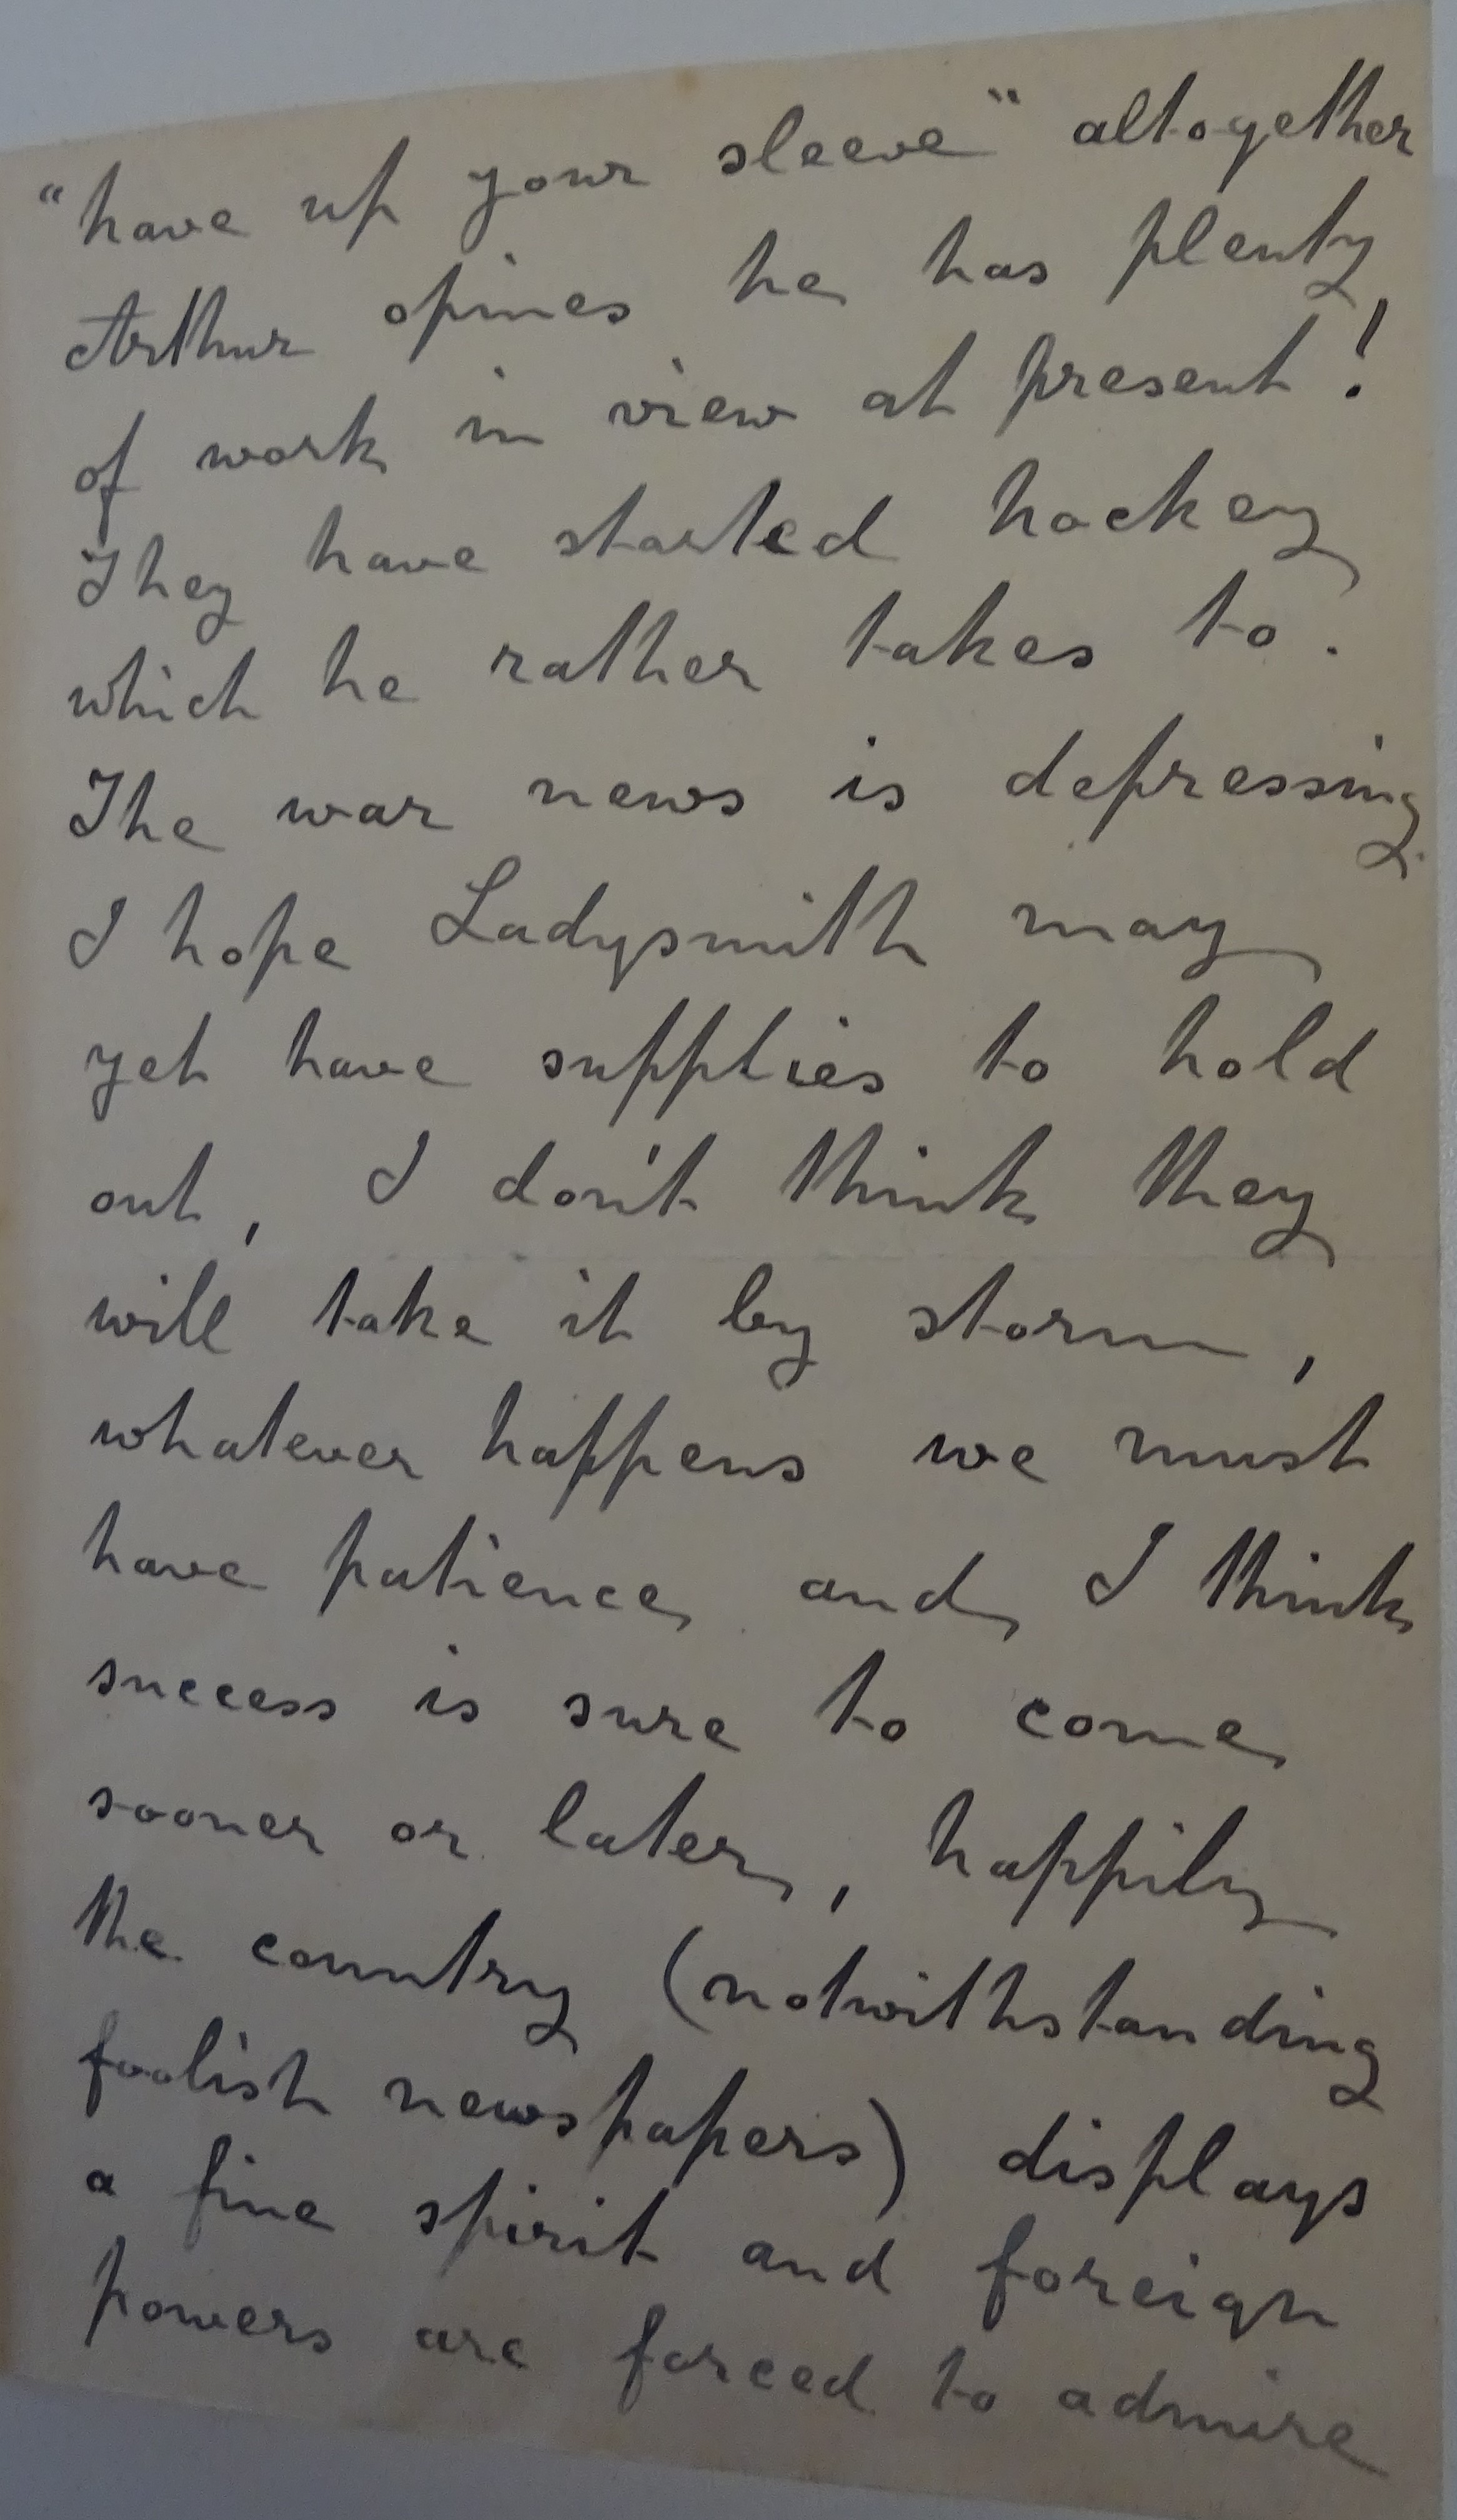 "have up your sleeve" altogether
Arthur opines he has plenty
of work in view at present!
They have started hockey
which he rather takes to.
The war news is depressing.
I hope Ladysmith may
yet have supplies to hold
out, I don't think they
will take it by storm,
whatever happens we must
have patience and I think
success is sure to come
sooner or later, happily
the country (notwithstanding
foolish newspapers) displays
a fine spirit and foreign
powers are forced to admire